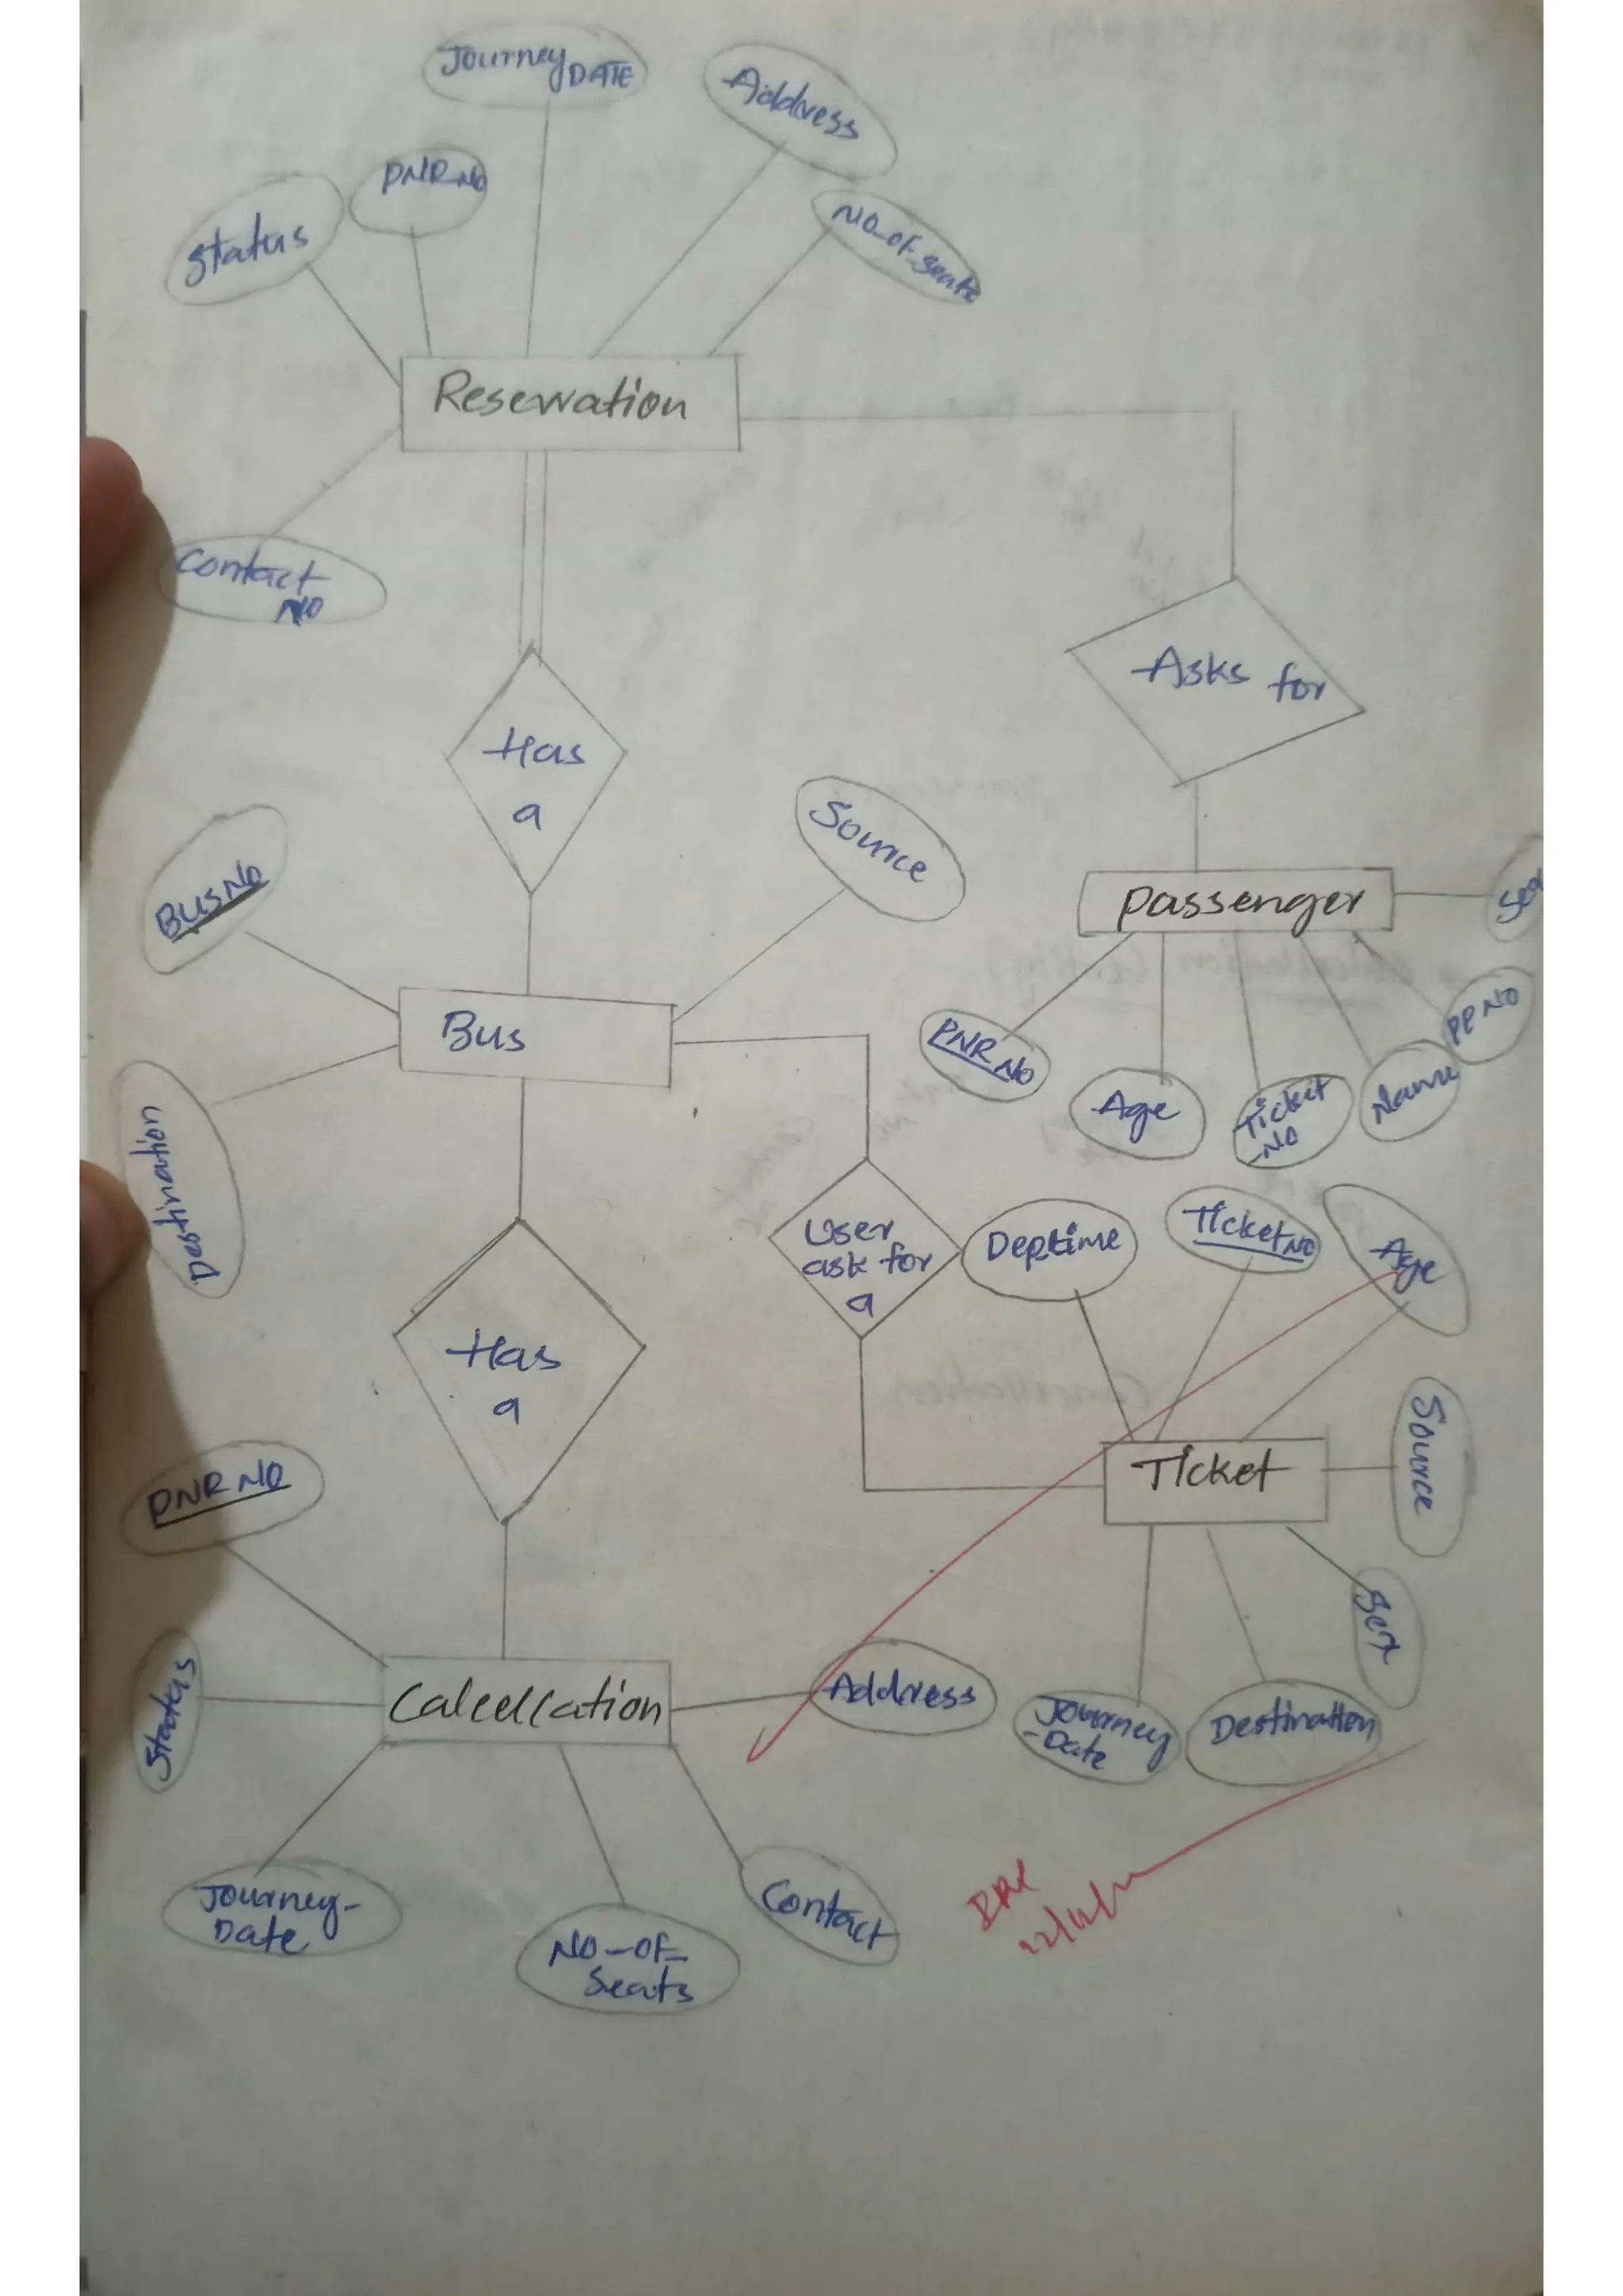 Journey DATE
Address
PNR No
No_of_seats
Status
Reservation
Contact
No
Asks for
Has
a
Source
Bus No
Passenger
Bus
PP NO
PNR No
Age
Ticket
-No
Name
Destination
User
ask for
a
Deptime
Ticket No
Age
Has
a
Source
Ticket
PNR NO
Sex
Status
Calcellation
Address
Journey
-Date
Destination
Journey-
Date
Contact
No-of-
Seats